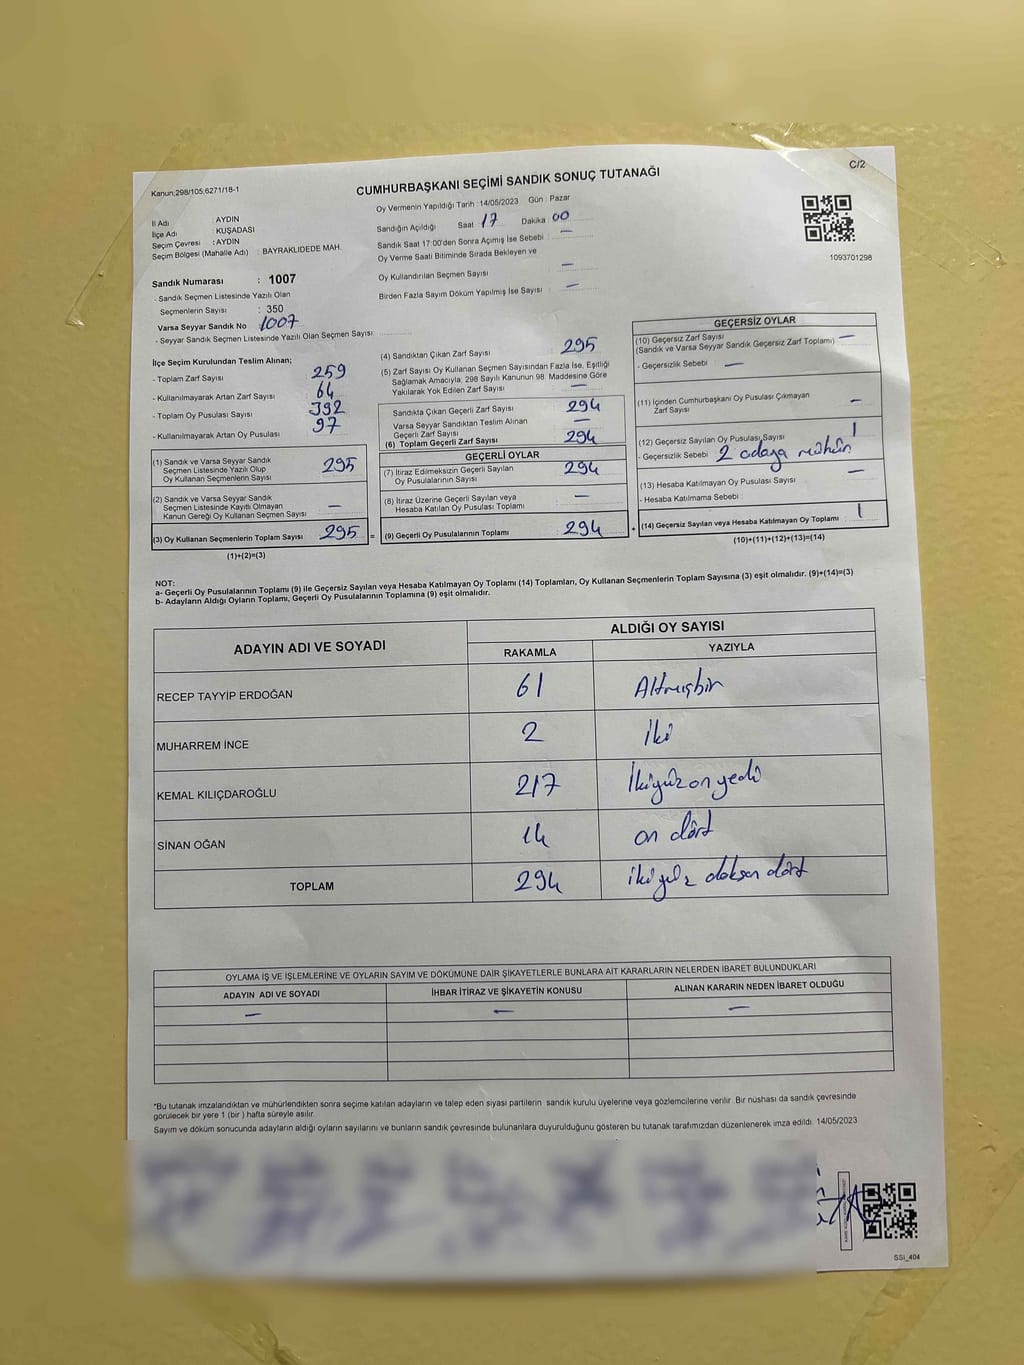 C/2
Kanun:298/105,6271/18-1
CUMHURBAŞKANI SEÇİMİ SANDIK SONUÇ TUTANAĞI
İl Adı : AYDIN
İlçe Adı : KUŞADASI
Seçim Çevresi : AYDIN
Seçim Bölgesi (Mahalle Adı) : BAYRAKLIDEDE MAH.
Oy Vermenin Yapıldığı Tarih : 14/05/2023 Gün : Pazar
Sandığın Açıldığı Saat 17 Dakika 00
Sandık Saat 17:00'den Sonra Açımış İse Sebebi : —
Oy Verme Saati Bitiminde Sırada Bekleyen ve
Oy Kullandırılan Seçmen Sayısı —
Birden Fazla Sayım Döküm Yapılmış İse Sayısı : —
1093701298
Sandık Numarası : 1007
- Sandık Seçmen Listesinde Yazılı Olan
Seçmenlerin Sayısı : 350
Varsa Seyyar Sandık No 1007
- Seyyar Sandık Seçmen Listesinde Yazılı Olan Seçmen Sayısı:
İlçe Seçim Kurulundan Teslim Alınan;
- Toplam Zarf Sayısı 259
- Kullanılmayarak Artan Zarf Sayısı 64
- Toplam Oy Pusulası Sayısı 392
- Kullanılmayarak Artan Oy Pusulası 97
(1) Sandık ve Varsa Seyyar Sandık
Seçmen Listesinde Yazılı Olup
Oy Kullanan Seçmenlerin Sayısı 295
(2) Sandık ve Varsa Seyyar Sandık
Seçmen Listesinde Kayıtlı Olmayan
Kanun Gereği Oy Kullanan Seçmen Sayısı —
(3) Oy Kullanan Seçmenlerin Toplam Sayısı 295 =
(1)+(2)=(3)
(4) Sandıktan Çıkan Zarf Sayısı 295
(5) Zarf Sayısı Oy Kullanan Seçmen Sayısından Fazla İse, Eşitliği
Sağlamak Amacıyla; 298 Sayılı Kanunun 98. Maddesine Göre
Yakılarak Yok Edilen Zarf Sayısı —
Sandıkta Çıkan Geçerli Zarf Sayısı 294
Varsa Seyyar Sandıktan Teslim Alınan
Geçerli Zarf Sayısı —
(6) Toplam Geçerli Zarf Sayısı 294
GEÇERLİ OYLAR
(7) İtiraz Edilmeksizin Geçerli Sayılan
Oy Pusulalarının Sayısı 294
(8) İtiraz Üzerine Geçerli Sayılan veya
Hesaba Katılan Oy Pusulası Toplamı —
(9) Geçerli Oy Pusulalarının Toplamı 294 +
GEÇERSİZ OYLAR
(10) Geçersiz Zarf Sayısı —
(Sandık ve Varsa Seyyar Sandık Geçersiz Zarf Toplamı)
- Geçersizlik Sebebi —
(11) İçinden Cumhurbaşkanı Oy Pusulası Çıkmayan
Zarf Sayısı —
(12) Geçersiz Sayılan Oy Pusulası Sayısı 1
- Geçersizlik Sebebi 2 adaya mühür
(13) Hesaba Katılmayan Oy Pusulası Sayısı —
- Hesaba Katılmama Sebebi
(14) Geçersiz Sayılan veya Hesaba Katılmayan Oy Toplamı 1
(10)+(11)+(12)+(13)=(14)
NOT:
a- Geçerli Oy Pusulalarının Toplamı (9) ile Geçersiz Sayılan veya Hesaba Katılmayan Oy Toplamı (14) Toplamları, Oy Kullanan Seçmenlerin Toplam Sayısına (3) eşit olmalıdır. (9)+(14)=(3)
b- Adayların Aldığı Oyların Toplamı, Geçerli Oy Pusulalarının Toplamına (9) eşit olmalıdır.
ADAYIN ADI VE SOYADI ALDIĞI OY SAYISI
RAKAMLA YAZIYLA
RECEP TAYYİP ERDOĞAN 61 Altmışbir
MUHARREM İNCE 2 İki
KEMAL KILIÇDAROĞLU 217 İkiyüzonyedi
SİNAN OĞAN 14 on dört
TOPLAM 294 ikiyüz doksan dört
OYLAMA İŞ VE İŞLEMLERİNE VE OYLARIN SAYIM VE DÖKÜMÜNE DAİR ŞİKAYETLERLE BUNLARA AİT KARARLARIN NELERDEN İBARET BULUNDUKLARI
ADAYIN ADI VE SOYADI İHBAR İTİRAZ VE ŞİKAYETİN KONUSU ALINAN KARARIN NEDEN İBARET OLDUĞU
— — —
*Bu tutanak imzalandıktan ve mühürlendikten sonra seçime katılan adayların ve talep eden siyasi partilerin sandık kurulu üyelerine veya gözlemcilerine verilir. Bir nüshası da sandık çevresinde
görülecek bir yere 1 (bir) hafta süreyle asılır.
Sayım ve döküm sonucunda adayların aldığı oyların sayılarını ve bunların sandık çevresinde bulunanlara duyurulduğunu gösteren bu tutanak tarafımızdan düzenlenerek imza edildi. 14/05/2023
SSİ_404